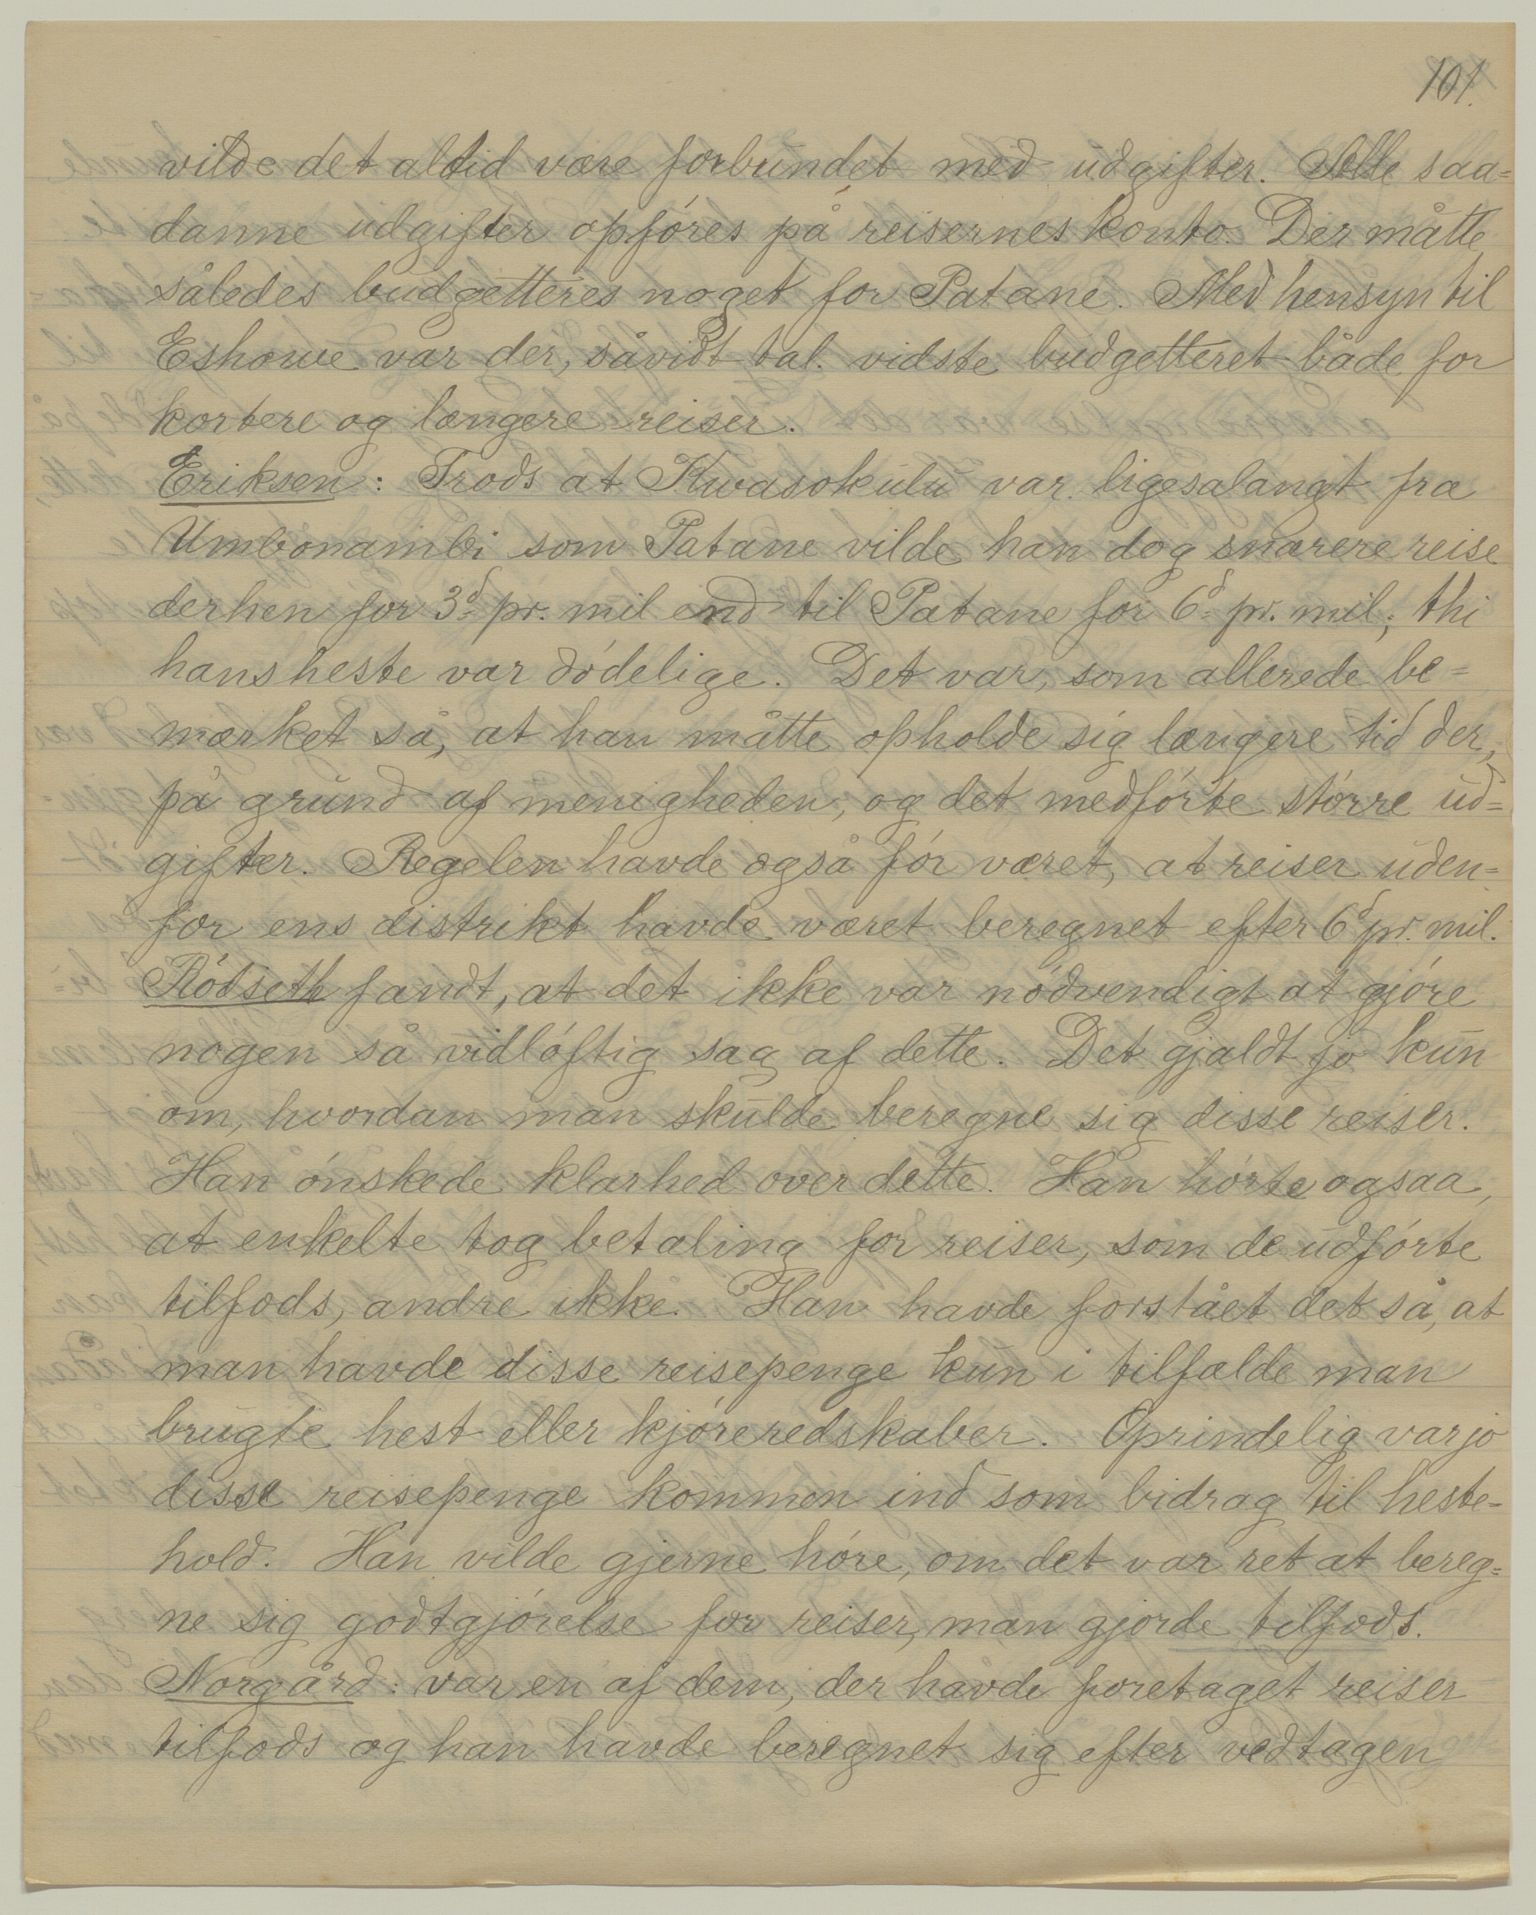 101.
vilde det altid være forbundet med udgifter. Alle saa=
danne udgifter opføres på reisernes konto. Der måtte
således budgetteres noget for Patane. Med hensyn til
Eshowe var der, såvidt tal. vidste budgetteret både for
kortere og længere reiser.
Eriksen: Trods at Kwasokulu var ligesalangt fra
Umbonambi som Patane vilde han dog snarere reise
derhen for 3d pr. mil end til Patane for 6d pr. mil; thi
hans heste var dødelige. Det var, som allerede be=
mærket så, at han måtte opholde sig længere tid der,
på grund af menigheden, og det medførte større ud=
gifter. Regelen havde også før været, at reiser uden=
for ens distrikt havde været beregnet efter 6d pr. mil.
Rødseth fandt, at det ikke var nødvendigt at gjøre
nogen så vidløftig sag af dette. Det gjaldt jo kun
om, hvordan man skulde beregne sig disse reiser.
Han ønskede klarhed over dette. Han hørte ogsaa,
at enkelte tog betaling for reiser, som de udførte
tilfods, andre ikke. Han havde forstået det så, at
man havde disse reisepenge kun i tilfælde man
brugte hest eller kjøreredskaber. Oprindelig var jo
disse reisepenge kommen ind som bidrag til heste=
hold. Han vilde gjerne høre, om det var ret at bereg=
ne sig godtgjørelse for reiser, man gjorde tilfods.
Norgård: var en af dem, der havde foretaget reiser
tilfods og han havde beregnet sig efter vedtagen